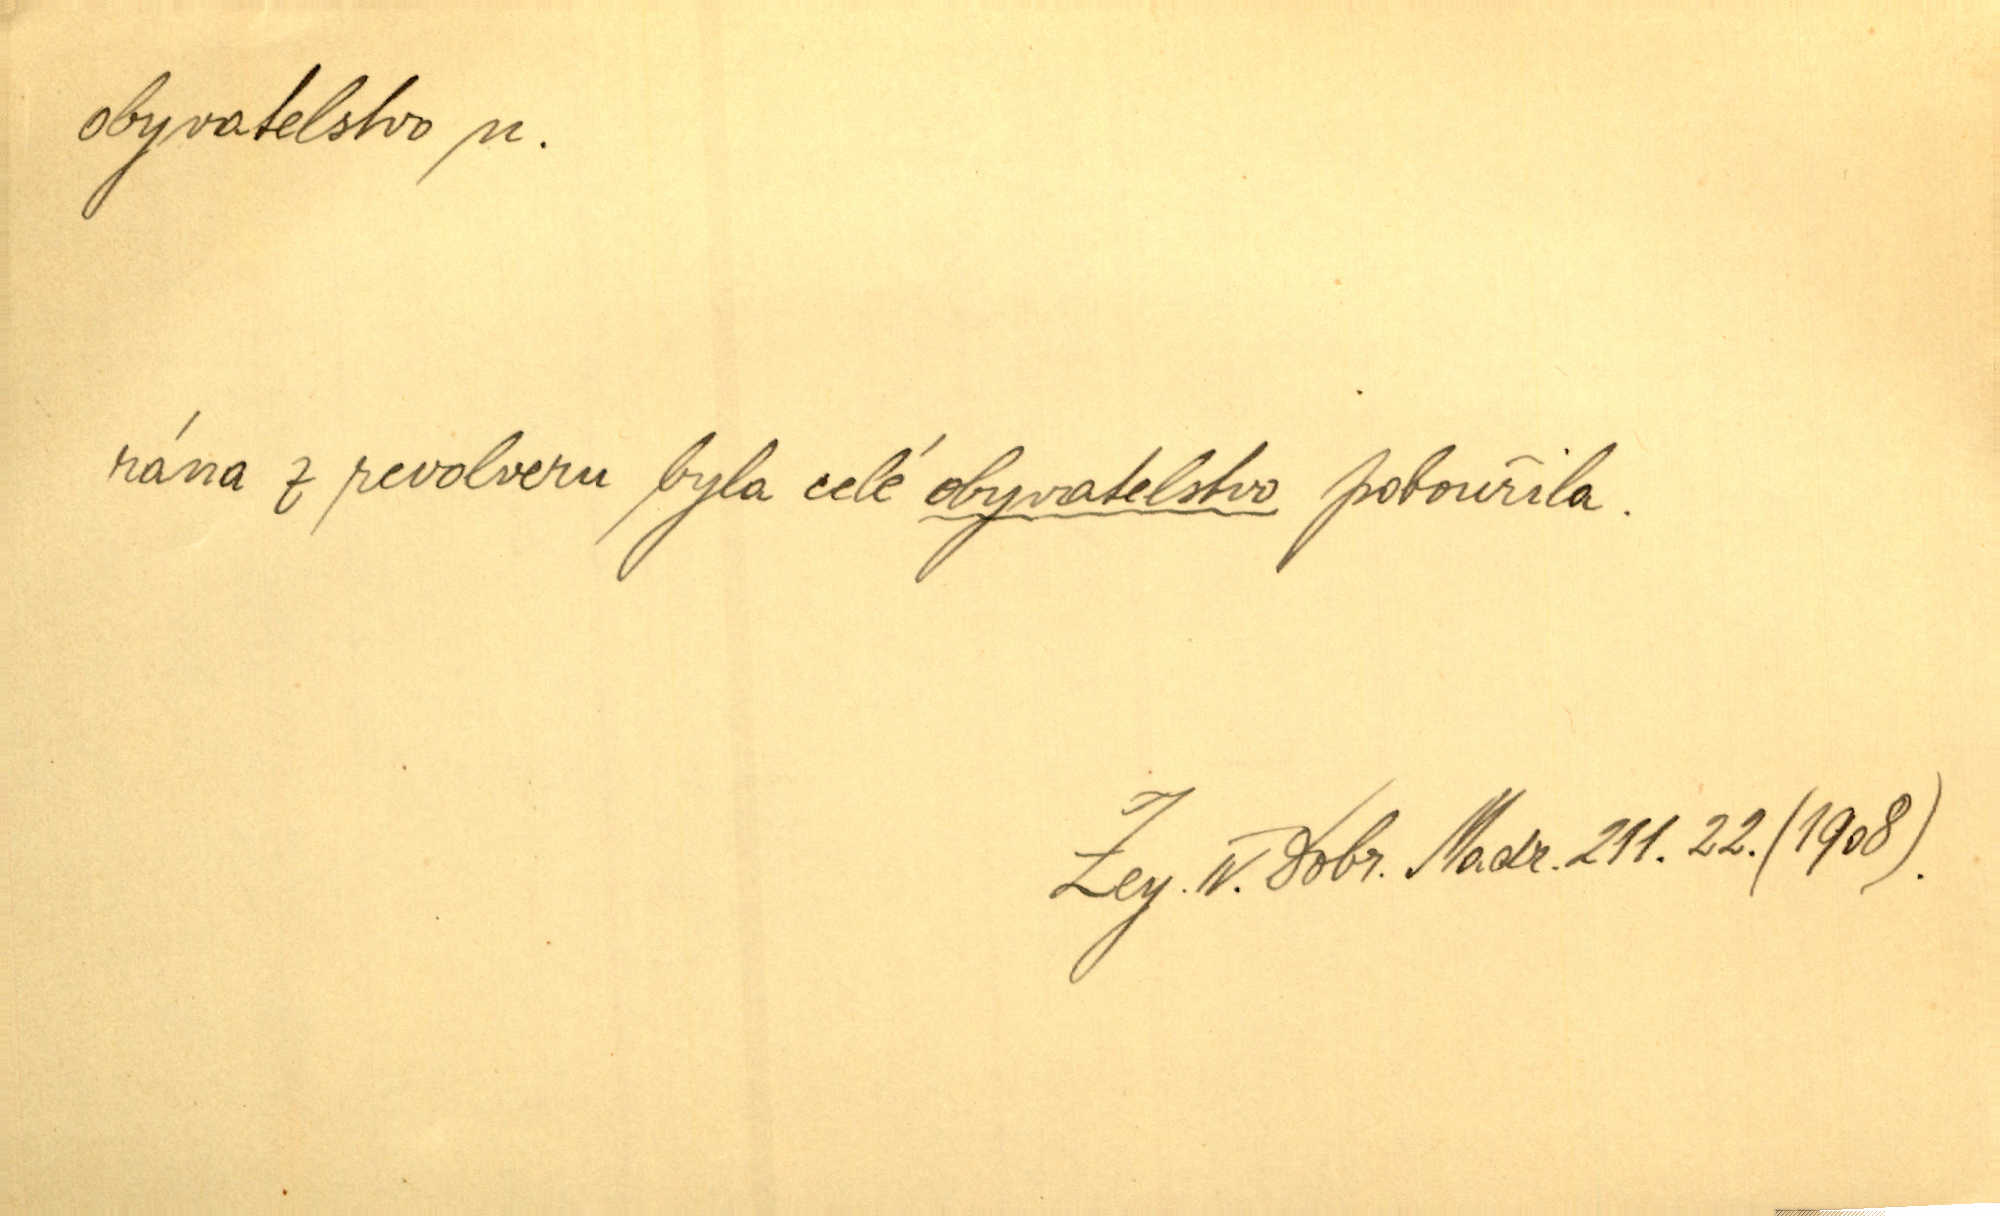 obyvatelstvo n.
rána z revolveru byla celé obyvatelstvo pobouřila.
Zey. IV. Dobr. Madr. 211. 22. (1908).